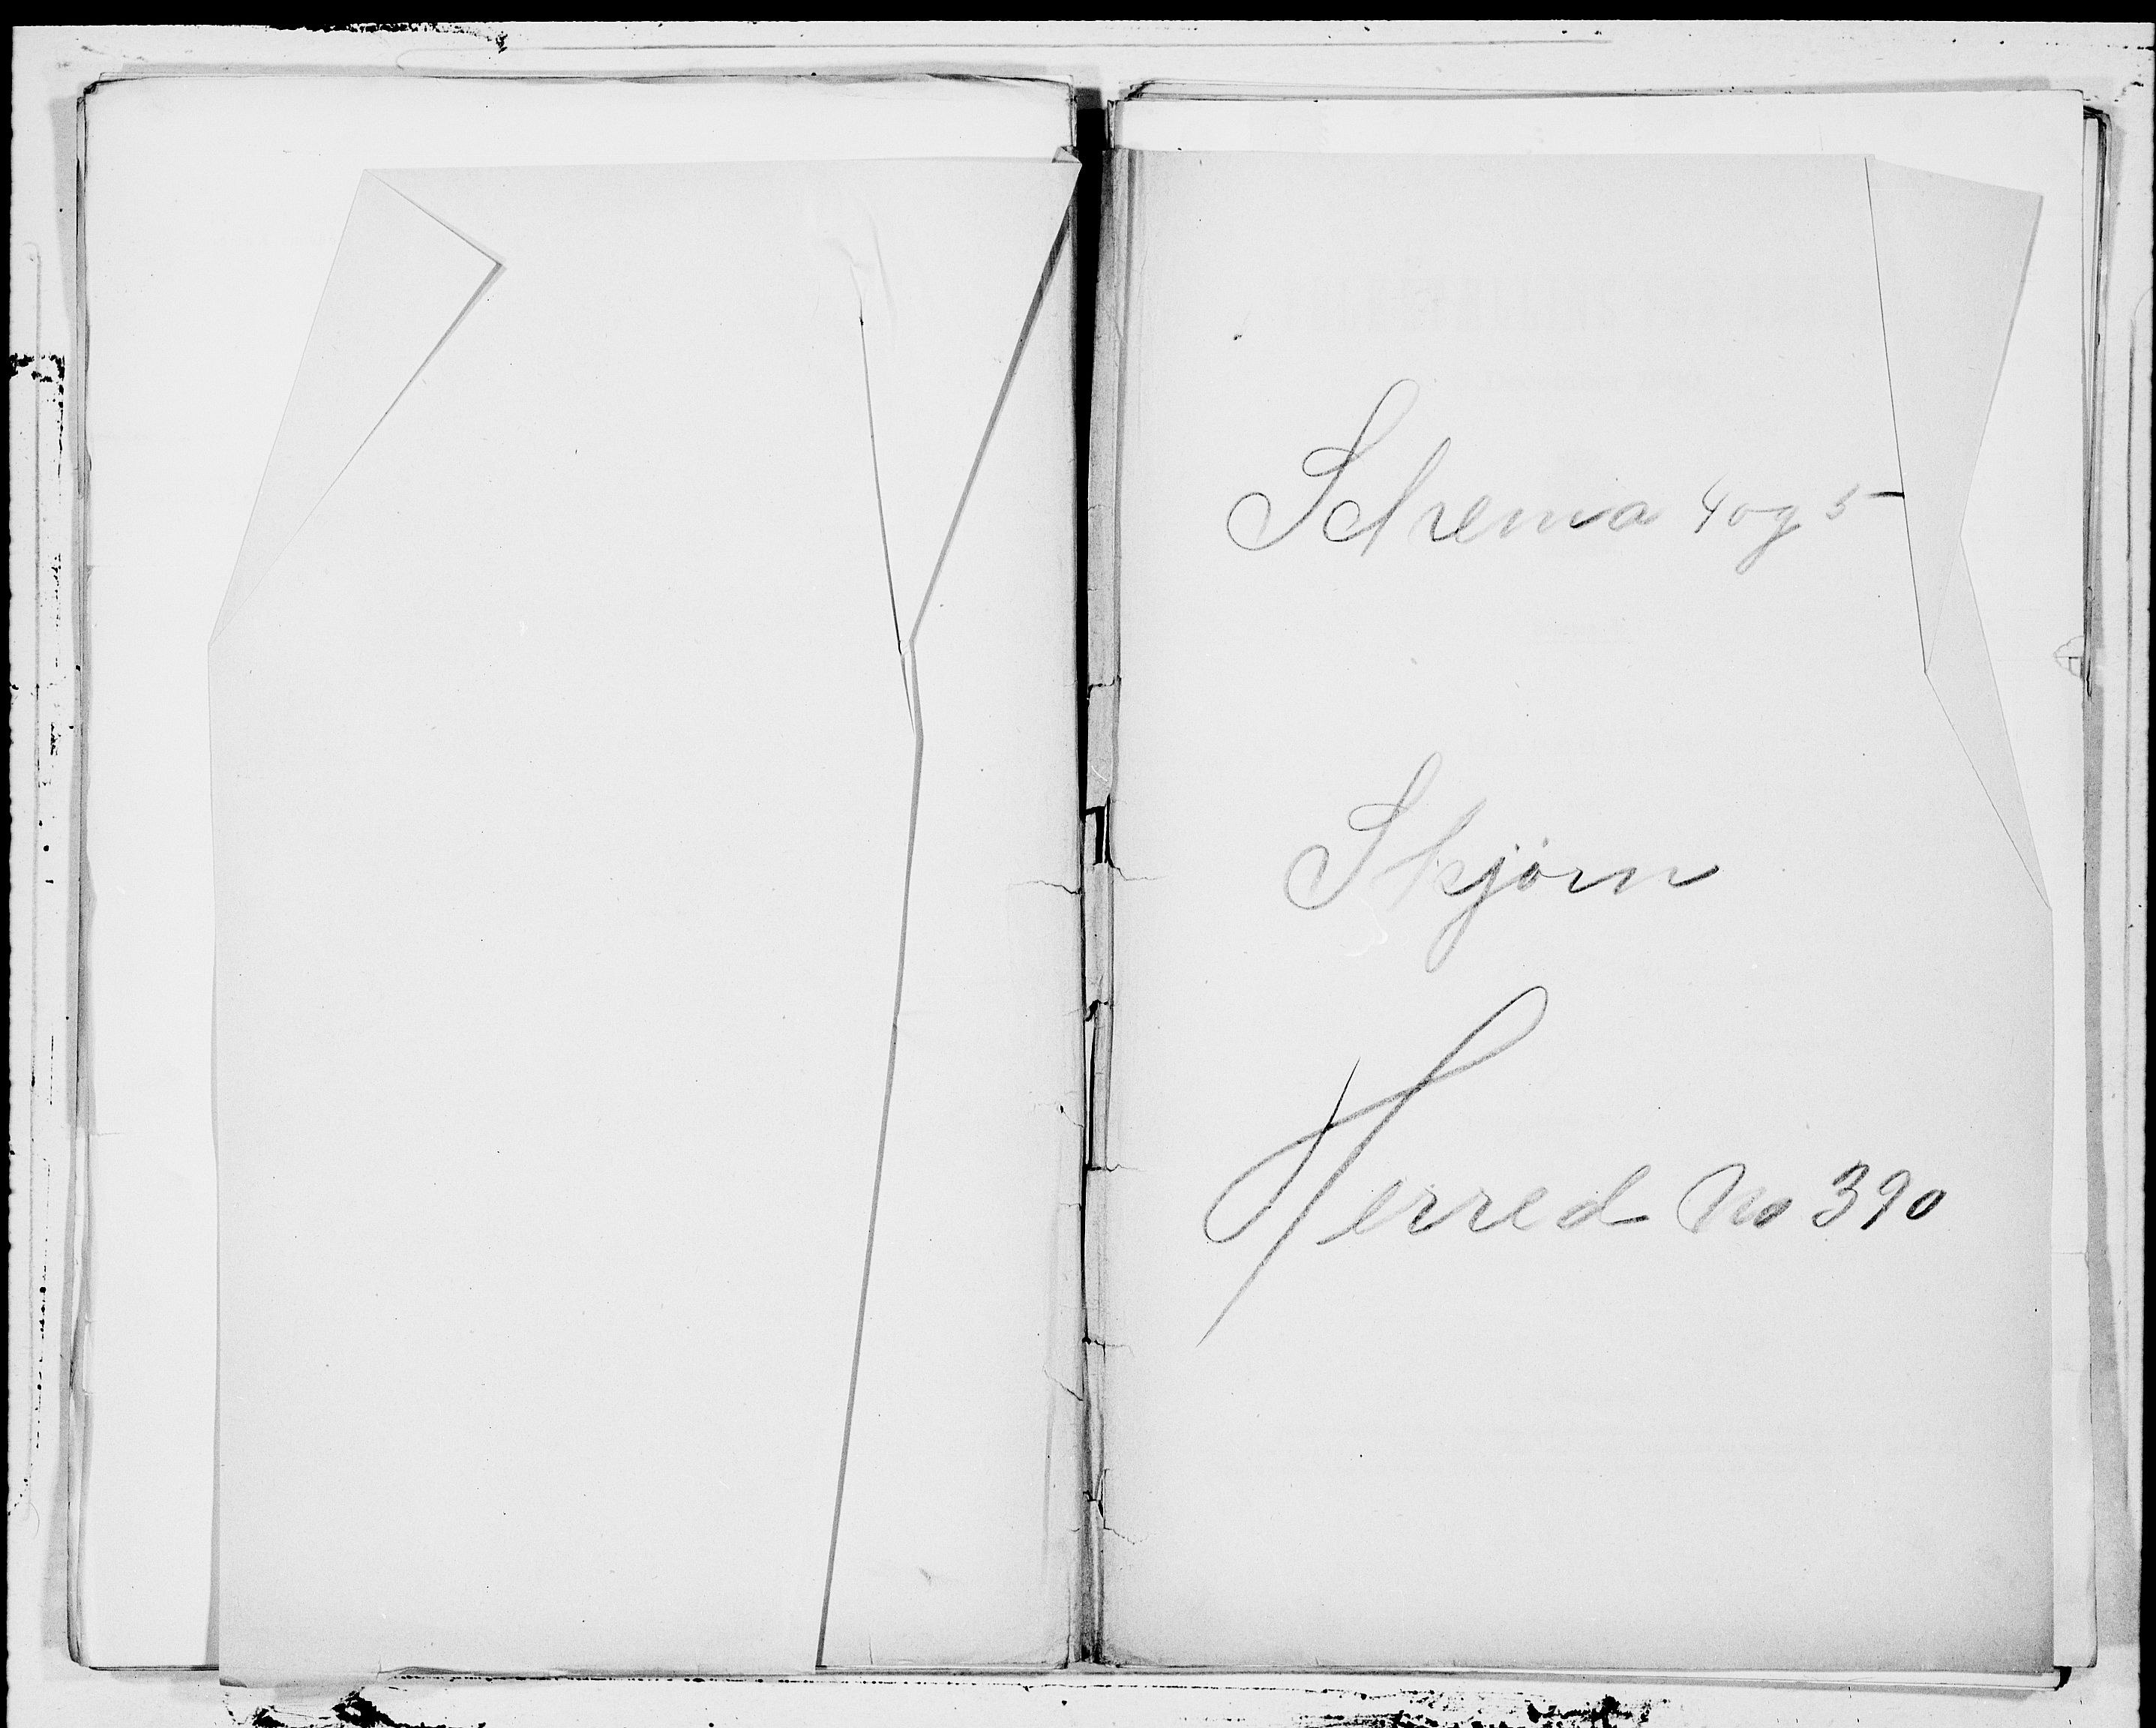 Schema 4 og 5
Skjörn
Herred No 390